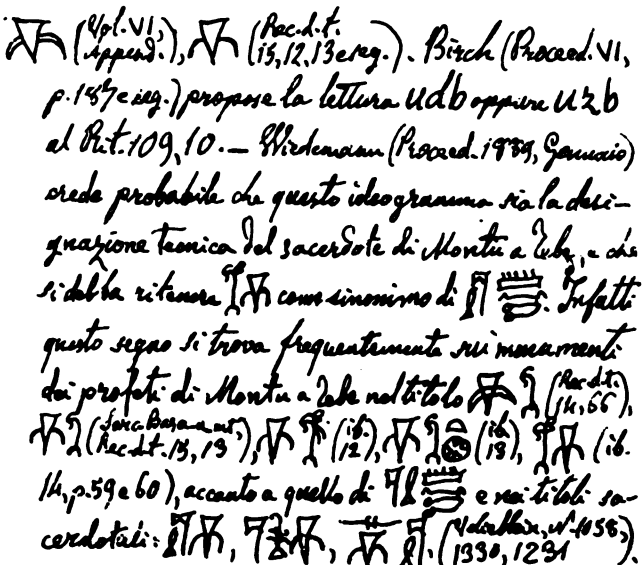 (Vol. VI, Append.), (Rec. d. t. 15, 12, 13 e seg.). Birch (Proceed. VI,
p. 187 e seg.) propose la lettura udb oppure uzb
al Rit. 109, 10. — Wiedemann (Proceed. 1889, Gennaio)
crede probabile che questo ideogramma sia la desi-
gnazione tecnica del sacerdote di Montu a Tebe, e che
si debba ritenere come sinonimo di . Infatti
questo segno si trova frequentemente sui monumenti
dei profeti di Montu a Tebe nel titolo (Rec. d. t. 14, 66),
( Rec. d. t. 15, 13), (ib. 12), (ib. 18), (ib.
14, p. 59 e 60), accanto a quello di e nei titoli sa-
cerdotali: , , , ( Nº 1058, 1330, 1231).